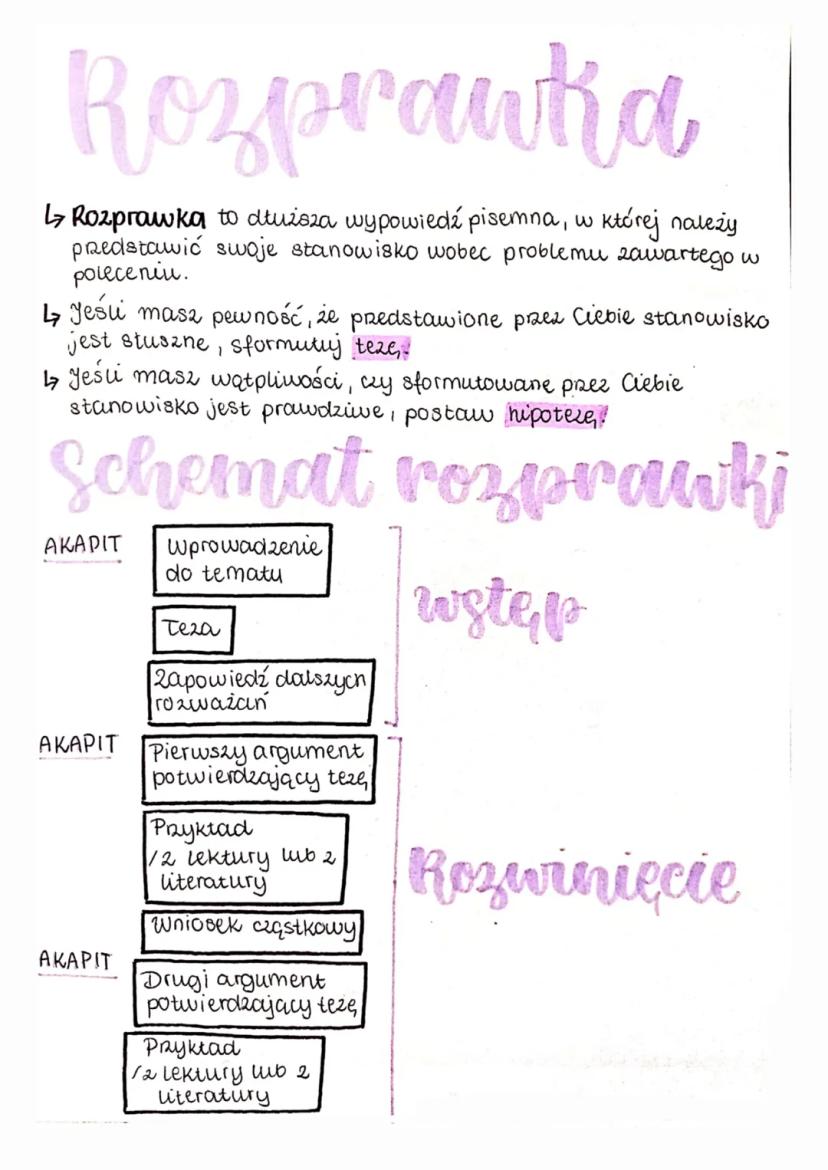 Rozprawka
↳ Rozprawka to dłuższa wypowiedź pisemna, w której należy
przedstawić swoje stanowisko wobec problemu zawartego w
poleceniu.
↳ Jeśli masz pewność, że przedstawione przez Ciebie stanowisko
jest słuszne, sformułuj tezę!
↳ Jeśli masz wątpliwości, czy sformułowane przez Ciebie
stanowisko jest prawdziwe, postaw hipotezę!
Schemat rozprawki
AKAPIT
Wprowadzenie
do tematu
Teza
Zapowiedź dalszych
rozważań
Wstęp
AKAPIT
Pierwszy argument
potwierdzający tezę
Przykład
/z lektury lub z
literatury
Wniosek cząstkowy
Rozwinięcie
AKAPIT
Drugi argument
potwierdzający tezę
Przykład
/z lektury lub z
literatury